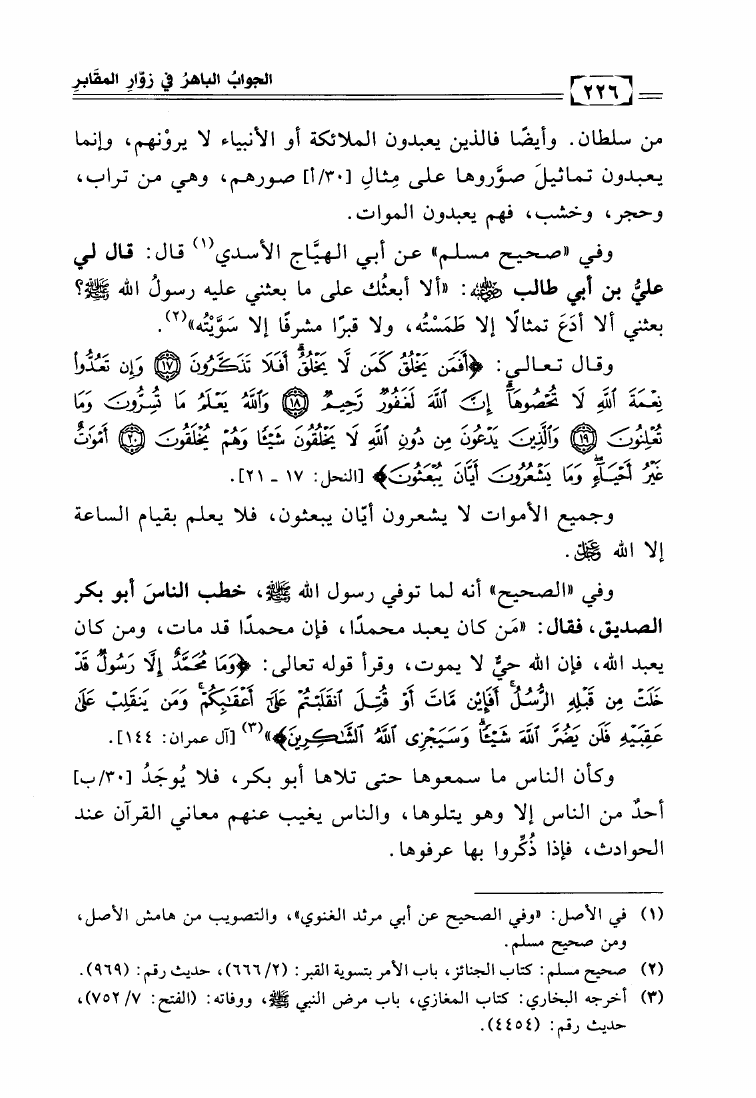 ٢٢٦ الجوابُ الباهرُ في زوّارِ المقَابرِ
من سلطان. وأيضًا فالذين يعبدون الملائكة أو الأنبياء لا يروْنهم، وإنما
يعبدون تماثيلَ صوَّروها على مِثالِ [٣٠/أ] صورهم، وهي من تراب،
وحجر، وخشب، فهم يعبدون الموات.
وفي «صحيح مسلم» عن أبي الهيَّاج الأسدي(١) قال: قال لي
عليُّ بن أبي طالب رضي الله عنه: «ألا أبعثُك على ما بعثني عليه رسولُ الله ﷺ؟
بعثني ألا أدَعَ تمثالًا إلا طَمَسْتُه، ولا قبرًا مشرفًا إلا سَوَّيْتُه»(٢).
وقال تعالى: ﴿أَفَمَن يَخْلُقُ كَمَن لَّا يَخْلُقُ ۗ أَفَلَا تَذَكَّرُونَ ١٧ وَإِن تَعُدُّوا۟
نِعْمَةَ ٱللَّهِ لَا تُحْصُوهَآ ۗ إِنَّ ٱللَّهَ لَغَفُورٌ رَّحِيمٌ ١٨ وَٱللَّهُ يَعْلَمُ مَا تُسِرُّونَ وَمَا
تُعْلِنُونَ ١٩ وَٱلَّذِينَ يَدْعُونَ مِن دُونِ ٱللَّهِ لَا يَخْلُقُونَ شَيْـًٔا وَهُمْ يُخْلَقُونَ ٢٠ أَمْوَٰتٌ
غَيْرُ أَحْيَآءٍ ۖ وَمَا يَشْعُرُونَ أَيَّانَ يُبْعَثُونَ﴾ [النحل: ١٧ - ٢١].
وجميع الأموات لا يشعرون أيّان يبعثون، فلا يعلم بقيام الساعة
إلا الله عز وجل.
وفي «الصحيح» أنه لما توفي رسول الله ﷺ، خطب الناسَ أبو بكر
الصديق، فقال: «مَن كان يعبد محمدًا، فإن محمدًا قد مات، ومن كان
يعبد الله، فإن الله حيٌّ لا يموت، وقرأ قوله تعالى: ﴿وَمَا مُحَمَّدٌ إِلَّا رَسُولٌ قَدْ
خَلَتْ مِن قَبْلِهِ ٱلرُّسُلُ ۚ أَفَإِي۟ن مَّاتَ أَوْ قُتِلَ ٱنقَلَبْتُمْ عَلَىٰٓ أَعْقَٰبِكُمْ ۚ وَمَن يَنقَلِبْ عَلَىٰ
عَقِبَيْهِ فَلَن يَضُرَّ ٱللَّهَ شَيْـًٔا ۗ وَسَيَجْزِى ٱللَّهُ ٱلشَّٰكِرِينَ﴾»(٣) [آل عمران: ١٤٤].
وكأن الناس ما سمعوها حتى تلاها أبو بكر، فلا يُوجَدُ [٣٠/ب]
أحدٌ من الناس إلا وهو يتلوها، والناس يغيب عنهم معاني القرآن عند
الحوادث، فإذا ذُكِّروا بها عرفوها.
(١) في الأصل: «وفي الصحيح عن أبي مرثد الغنوي»، والتصويب من هامش الأصل،
ومن صحيح مسلم.
(٢) صحيح مسلم: كتاب الجنائز، باب الأمر بتسوية القبر: (٦٦٦/٢)، حديث رقم: (٩٦٩).
(٣) أخرجه البخاري: كتاب المغازي، باب مرض النبي ﷺ، ووفاته: (الفتح: ٧٥٢/٧)،
حديث رقم: (٤٤٥٤).